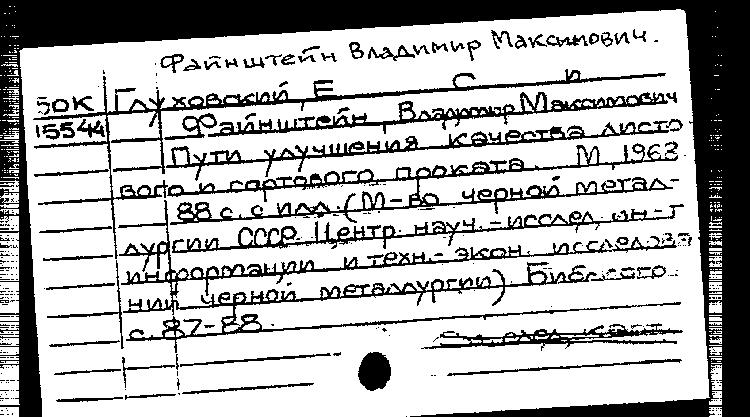 Файнштейн Владимир Максимович.
50К Глуховский, Е С и
15544 Файнштейн, Владимир Максимович
Пути улучшения качества листо-
вого и сортового проката. М, 1963.
88 с. с илл. (М-во черной метал-
лургии СССР. Центр. науч.-исслед. ин-т
информации и техн.-экон. исследова-
ний черной металлургии) Библиогр.
с. 87-88.
См. след. карт.